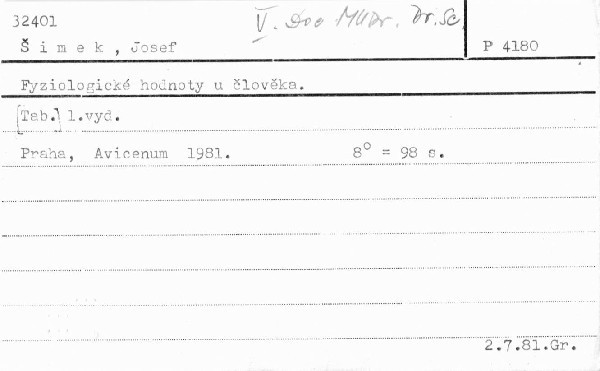 32401
V. Doc MUDr. Dr.Sc.
Š i m e k , Josef
P 4180
Fyziologické hodnoty u člověka.
[Tab.] 1.vyd.
Praha, Avicenum 1981. 8° = 98 s.
2.7.81.Gr.